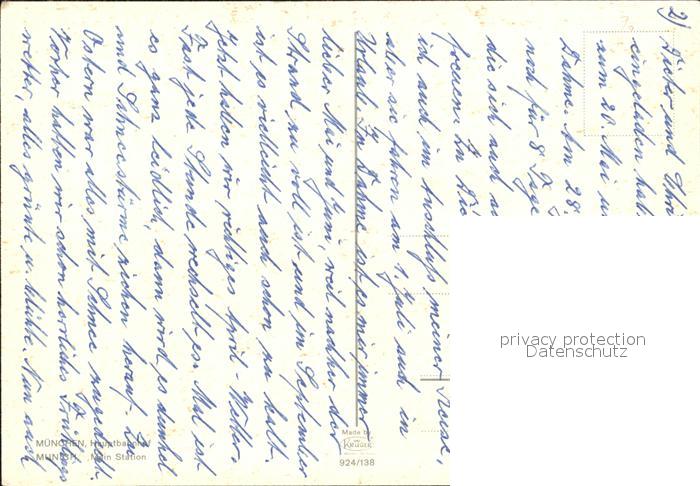 2)
Dieter und Chri
eingeladen hat
zum 20. Mai u
Dahme. Am 28.
noch für 8 Tage
die sich auch
freuen. In
ich auch im Anschluß meiner Reise,
aber sie fahren am 1. Juli auch in
Urlaub. In Dahme ist es mir immer
lieber Mai und Juni, weil nachher der
Strand zu voll ist und im September
ist es vielleicht auch schon zu kalt.
Jetzt haben wir richtiges April-Wetter.
Fast jede Stunde wechselt es. Mal ist
es ganz leidlich, dann wird es dunkel
und Schneestürme ziehen herauf. Zu
Ostern war alles mit Schnee zugedeckt.
Vorher hatten wir schon herrliches Frühlings
wetter, alles grünte u. blühte. Nun auch
MÜNCHEN, Hauptbahnhof
MUNICH, Main Station
Made by
KRÜGER
924/138
privacy protection
Datenschutz